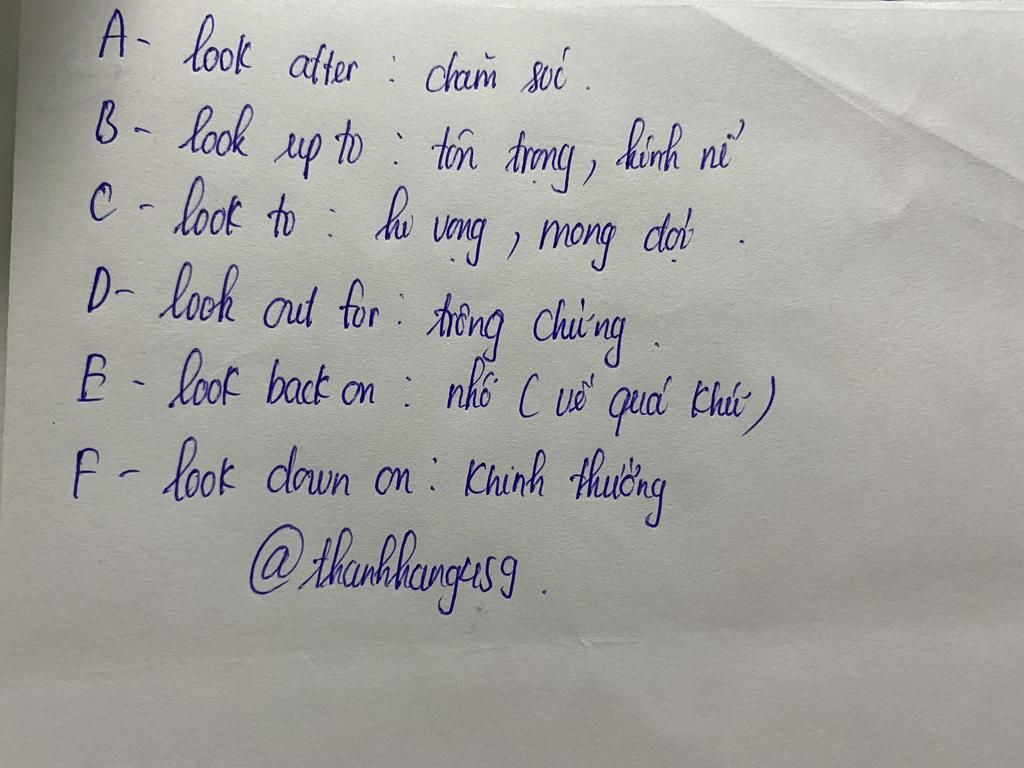 A- look after : chăm sóc.
B - look up to : tôn trọng, kính nể
C - look to : hi vọng, mong đợi.
D- look out for : trông chừng.
E - look back on : nhớ (về quá khứ)
F - look down on : khinh thường
@thanhhang459.